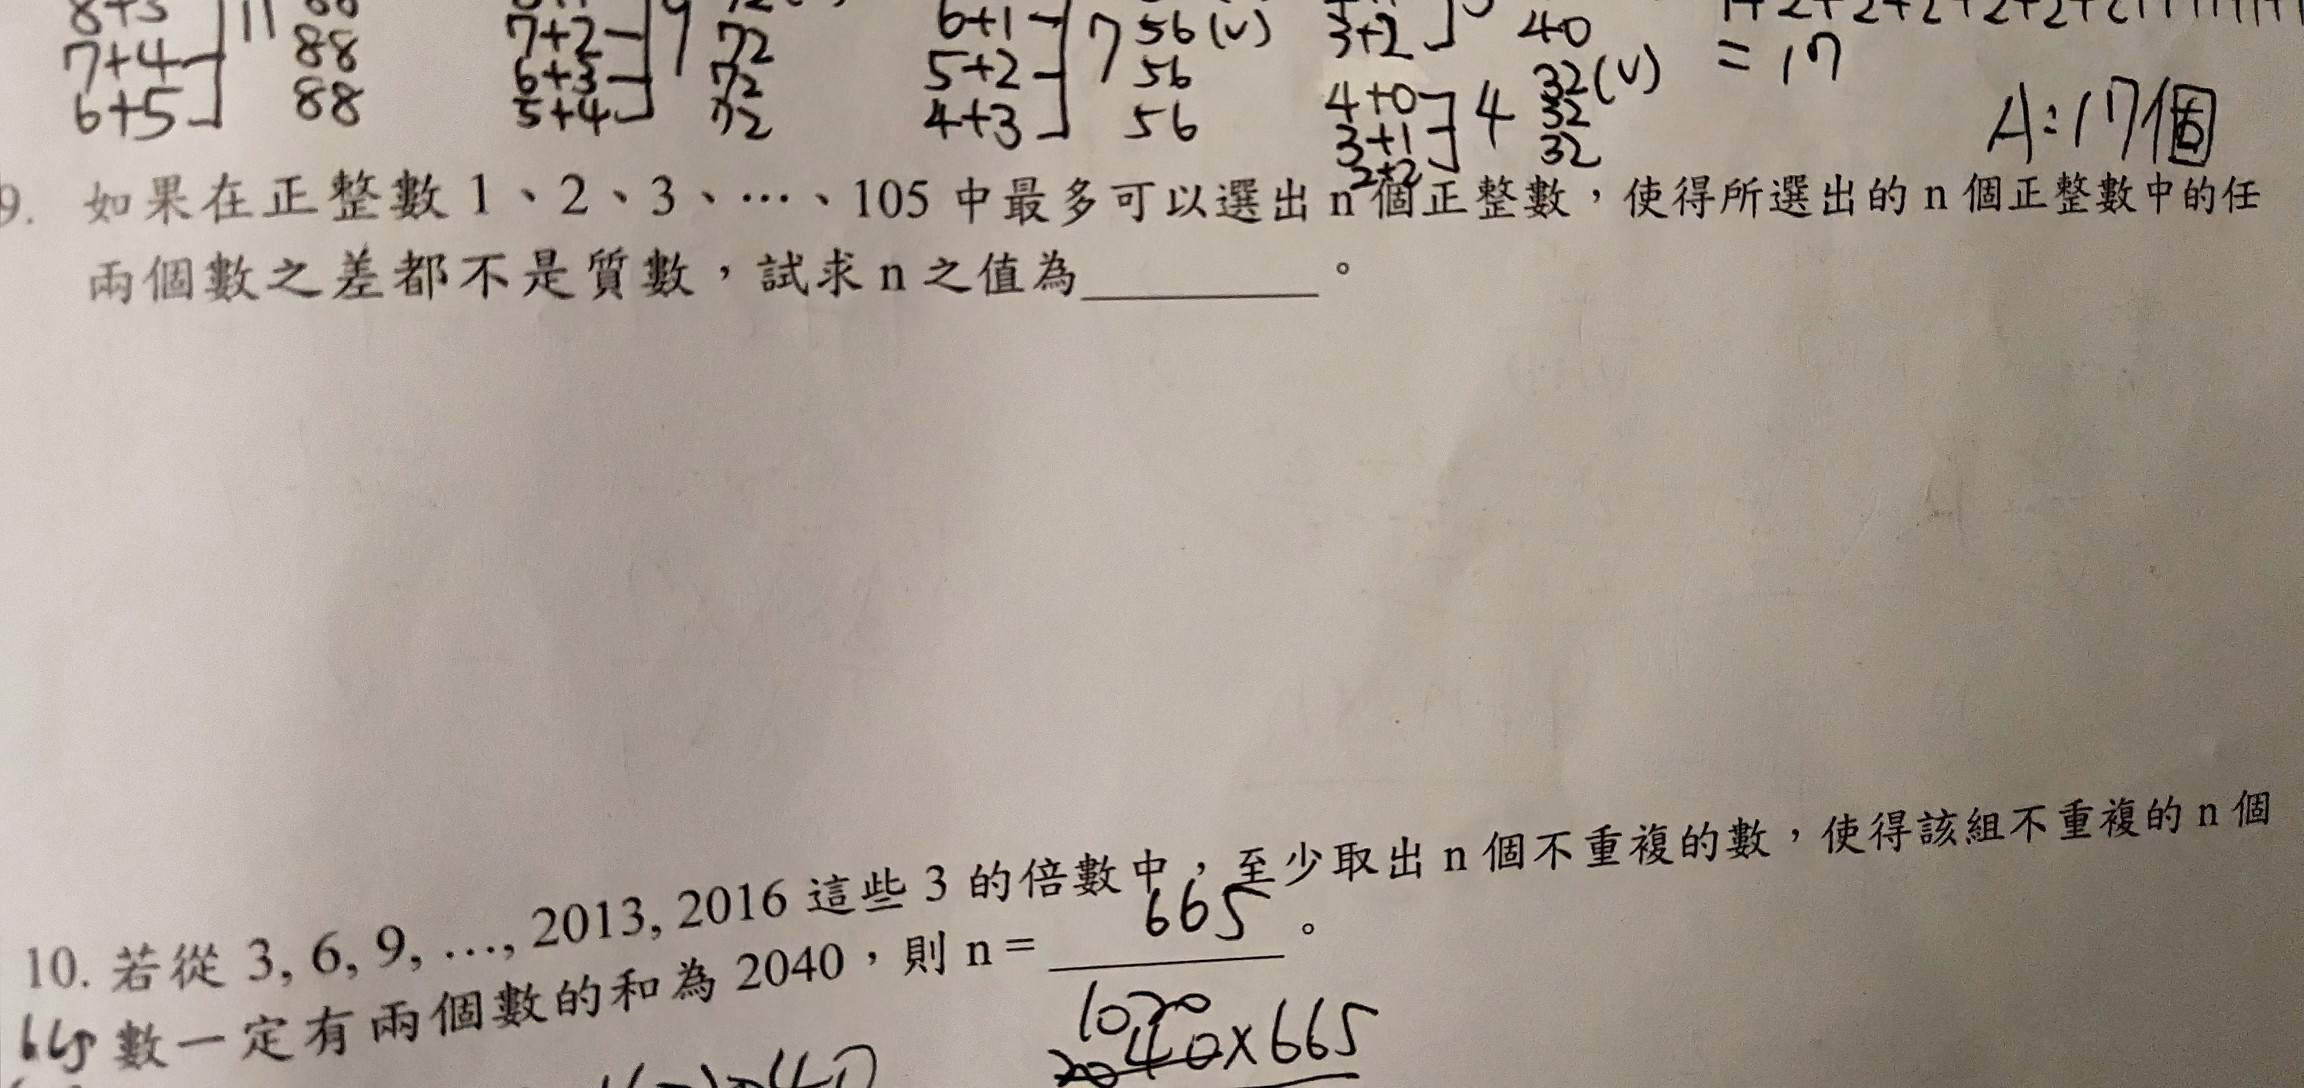 8+3 11 88 7+2 9 72 6+1 7 56(V) 3+2 40
7+4 88 6+3 72 5+2 56 4+0 4 32(V) =17
6+5 88 5+4 72 4+3 56 3+1 32 A:17個
2+2 32
9. 如果在正整數 1、2、3、…、105 中最多可以選出 n 個正整數,使得所選出的 n 個正整數中的任
兩個數之差都不是質數,試求 n 之值為________。
10. 若從 3, 6, 9, …, 2013, 2016 這些 3 的倍數中,至少取出 n 個不重複的數,使得該組不重複的 n 個
數一定有兩個數的和為 2040,則 n = 665。
665
1020
2040×665